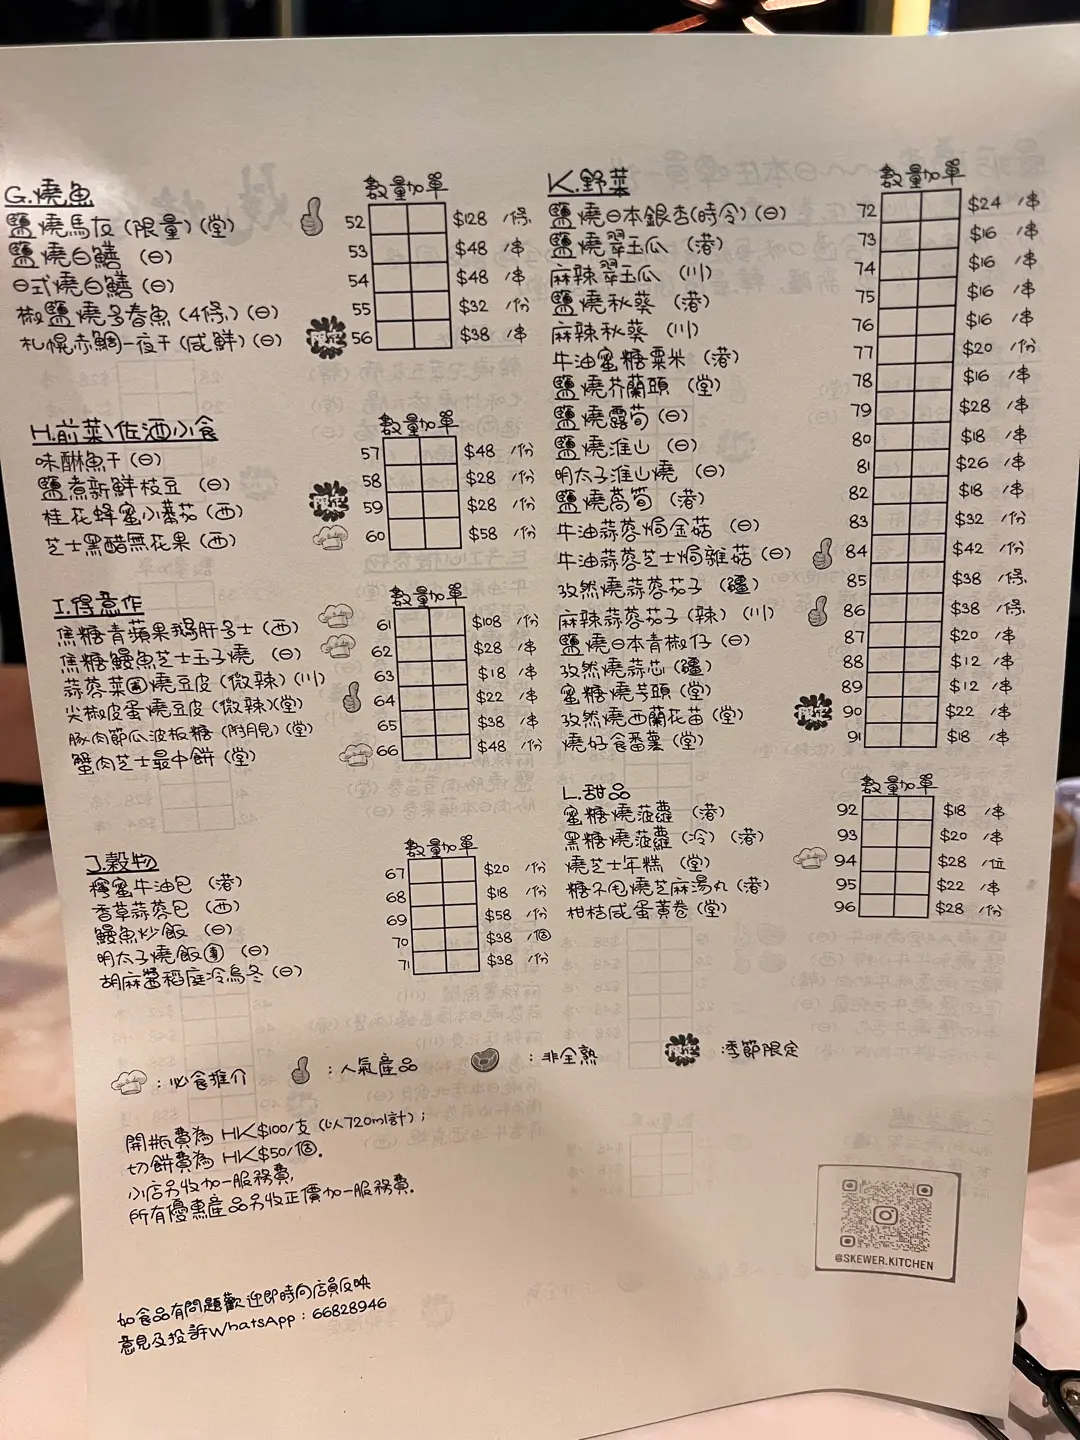 G.燒魚 數量加單
鹽燒馬友(限量)(堂) 52 $128 /條
鹽燒白鱔 (日) 53 $48 /串
日式燒白鱔 (日) 54 $48 /串
椒鹽燒多春魚 (4條) (日) 55 $32 /份
札幌赤鯛一夜干(咸鮮)(日) 限定 56 $38 /串
H.前菜\佐酒小食 數量加單
味醂魚干 (日) 57 $48 /份
鹽煮新鮮枝豆 (日) 58 $28 /份
桂花蜂蜜小番茄 (西) 限定 59 $28 /份
芝士黑醋無花果 (西) 60 $58 /份
I.得意作 數量加單
焦糖青蘋果鵝肝多士 (西) 61 $108 /份
焦糖鰻魚芝士玉子燒 (日) 62 $28 /串
蒜蓉菜圃燒豆皮 (微辣) (川) 63 $18 /串
尖椒皮蛋燒豆皮 (微辣)(堂) 64 $22 /串
豚肉節瓜波板糖 (附月見) (堂) 65 $38 /串
蟹肉芝士最中餅 (堂) 66 $48 /份
J.穀物 數量加單
檸蜜牛油包 (港) 67 $20 /份
香草蒜蓉包 (西) 68 $18 /份
鰻魚炒飯 (日) 69 $58 /份
明太子燒飯團 (日) 70 $38 /個
胡麻醬稻庭冷烏冬 (日) 71 $38 /份
K.野菜 數量加單
鹽燒日本銀杏(時令)(日) 72 $24 /串
鹽燒翠玉瓜 (港) 73 $16 /串
麻辣翠玉瓜 (川) 74 $16 /串
鹽燒秋葵 (港) 75 $16 /串
麻辣秋葵 (川) 76 $16 /串
牛油蜜糖粟米 (港) 77 $20 /份
鹽燒芥蘭頭 (堂) 78 $16 /串
鹽燒露荀 (日) 79 $28 /串
鹽燒淮山 (日) 80 $18 /串
明太子淮山燒 (日) 81 $26 /串
鹽燒萵荀 (港) 82 $18 /串
牛油蒜蓉焗金菇 (日) 83 $32 /份
牛油蒜蓉芝士焗雜菇 (日) 84 $42 /份
孜然燒蒜蓉茄子 (疆) 85 $38 /條
麻辣蒜蓉茄子 (辣) (川) 86 $38 /條
鹽燒日本青椒仔 (日) 87 $20 /串
孜然燒蒜芯 (疆) 88 $12 /串
蜜糖燒芋頭 (堂) 89 $12 /串
孜然燒西蘭花苗 (堂) 限定 90 $22 /串
燒好食番薯 (堂) 91 $18 /串
L.甜品 數量加單
蜜糖燒菠蘿 (港) 92 $18 /串
黑糖燒菠蘿 (冷) (港) 93 $20 /串
燒芝士年糕 (堂) 94 $28 /位
糖不甩燒芝麻湯丸 (港) 95 $22 /串
柑桔咸蛋黃卷 (堂) 96 $28 /份
:必食推介 :人氣產品 :非全熟 限定 :季節限定
開瓶費為 HK$100/支 (以720ml計);
切餅費為 HK$50/個.
小店另收加一服務費,
所有優惠產品另收正價加一服務費.
@SKEWER.KITCHEN
如食品有問題歡迎即時向店員反映
意見及投訴WhatsApp : 66828946